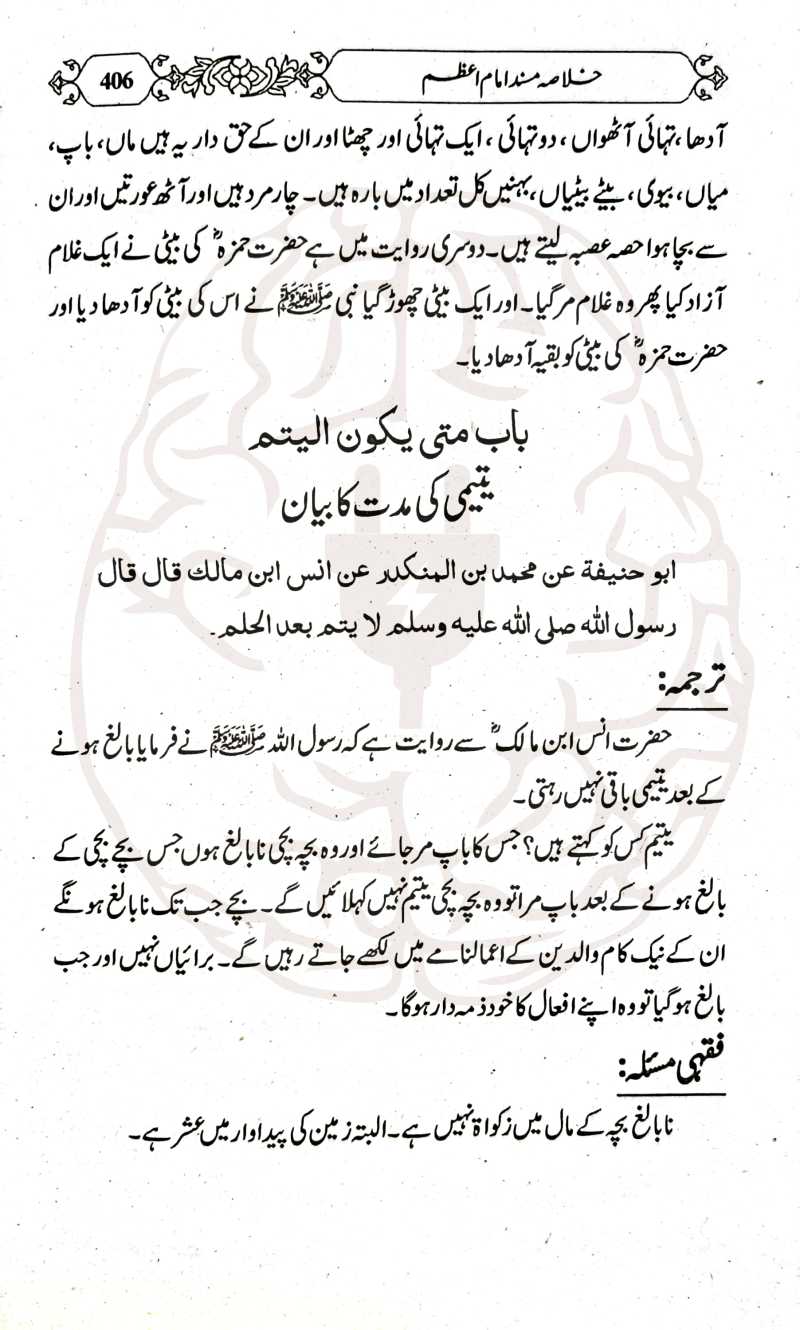 406
خلاصہ مسند امام اعظم
آدھا، تہائی آٹھواں، دو تہائی، ایک تہائی اور چھٹا اور ان کے حق دار یہ ہیں ماں، باپ،
میاں، بیوی، بیٹے بیٹیاں، بہنیں کل تعداد میں بارہ ہیں۔ چار مرد ہیں اور آٹھ عورتیں اور ان
سے بچا ہوا حصہ عصبہ لیتے ہیں۔ دوسری روایت میں ہے حضرت حمزہؓ کی بیٹی نے ایک غلام
آزاد کیا پھر وہ غلام مر گیا۔ اور ایک بیٹی چھوڑ گیا نبی ﷺ نے اس کی بیٹی کو آدھا دیا اور
حضرت حمزہؓ کی بیٹی کو بقیہ آدھا دیا۔
باب متی یکون الیتم
یتیمی کی مدت کا بیان
ابو حنیفة عن محمد بن المنکدر عن انس ابن مالک قال قال
رسول الله صلی الله علیه وسلم لا یتم بعد الحلم۔
ترجمہ:
حضرت انس ابن مالکؓ سے روایت ہے کہ رسول اللہ ﷺ نے فرمایا بالغ ہونے
کے بعد یتیمی باقی نہیں رہتی۔
یتیم کس کو کہتے ہیں؟ جس کا باپ مر جائے اور وہ بچہ بچی نابالغ ہوں جس بچے بچی کے
بالغ ہونے کے بعد باپ مرا تو وہ بچہ بچی یتیم نہیں کہلائیں گے۔ بچے جب تک نابالغ ہونگے
ان کے نیک کام والدین کے اعمالنامے میں لکھے جاتے رہیں گے۔ برائیاں نہیں اور جب
بالغ ہو گیا تو وہ اپنے افعال کا خود ذمہ دار ہو گا۔
فقہی مسئلہ:
نابالغ بچہ کے مال میں زکواۃ نہیں ہے۔ البتہ زمین کی پیداوار میں عشر ہے۔